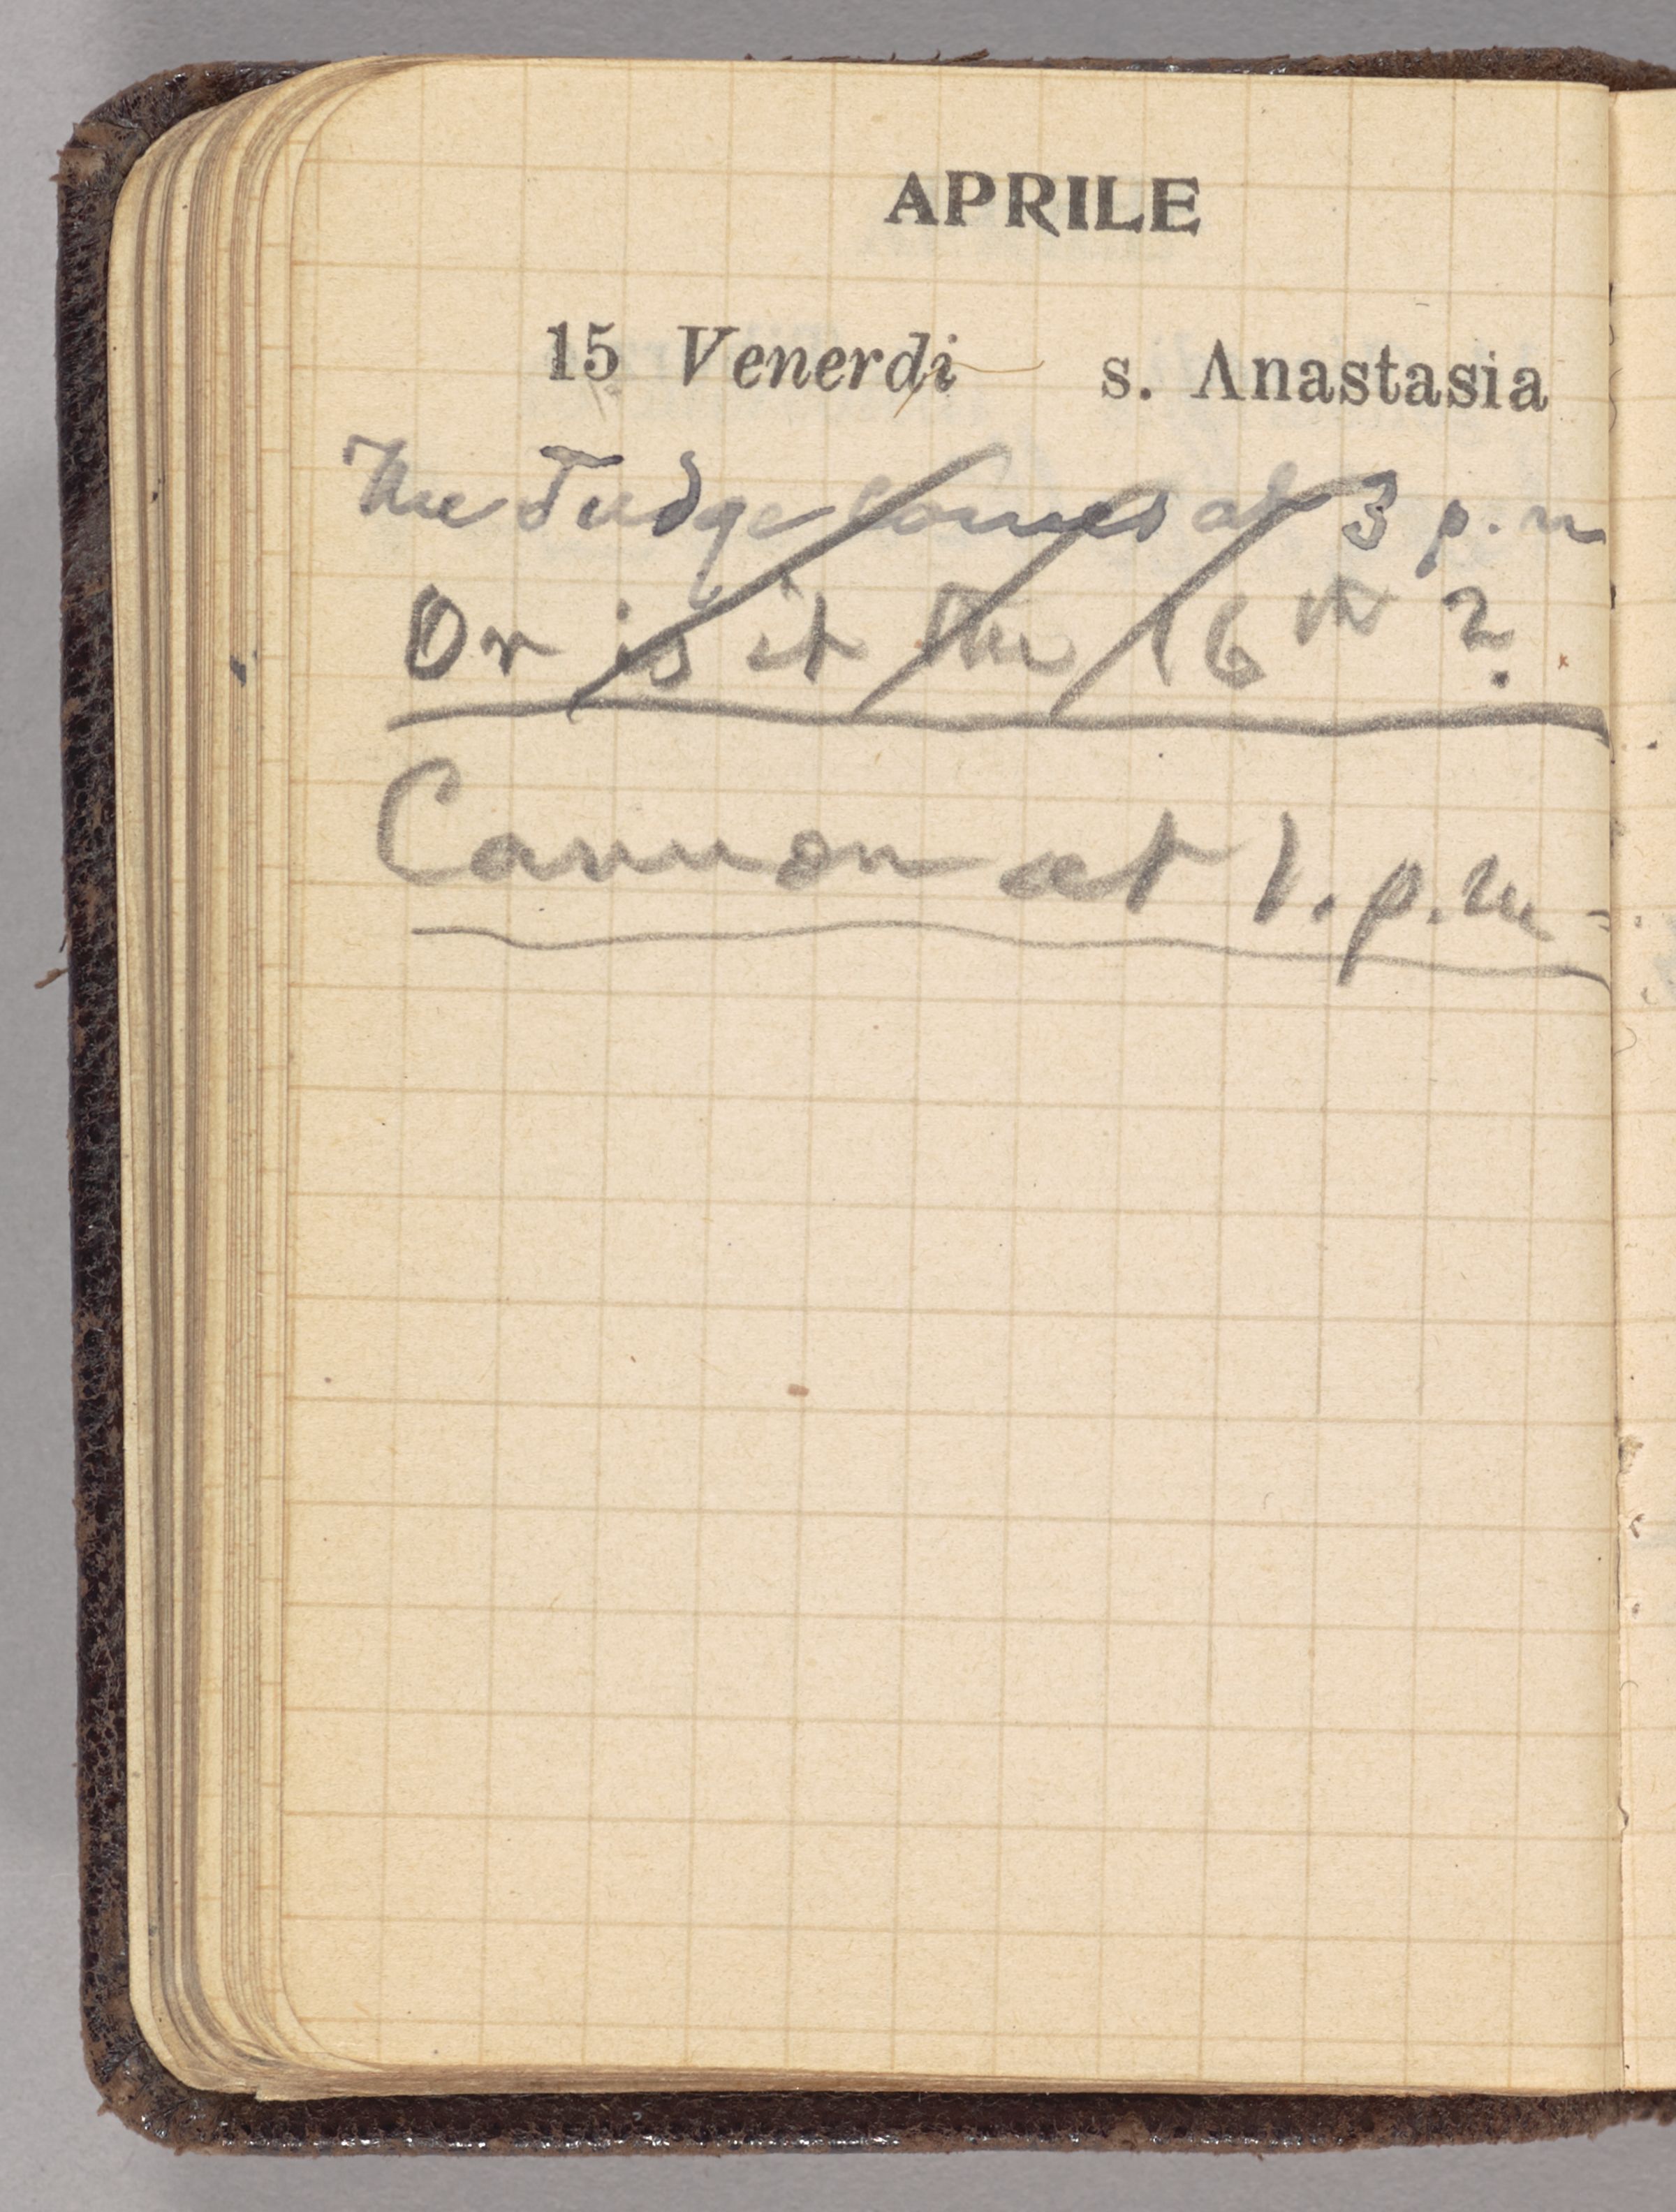 APRILE
15 Venerdi s. Anastasia
The Judge comes at 3 p.m
Or is it the 16th ?
Cannon at 1. p.m.